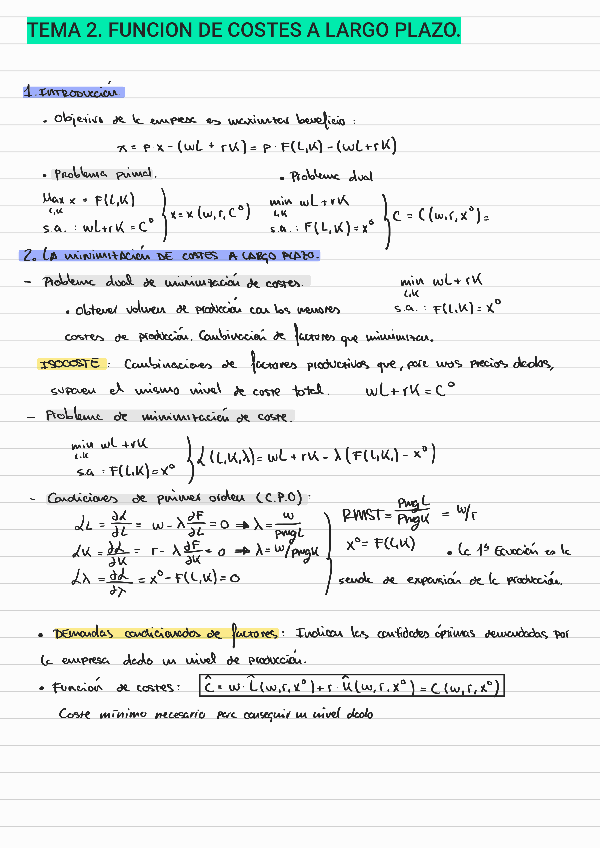 TEMA 2. FUNCION DE COSTES A LARGO PLAZO.
1. INTRODUCCIÓN
• Objetivo de la empresa es maximizar beneficio:
π = p x - (wL + rK) = p · F(L,K) - (wL + rK)
• Problema primal.
Max x = F(L,K)
L,K
s.a. : wL + rK = C⁰
x = x (w, r, C⁰)
• Problema dual
min wL + rK
L,K
s.a. : F(L,K) = x⁰
C = C (w, r, x⁰) =
2. LA MINIMIZACIÓN DE COSTES A LARGO PLAZO.
- Problema dual de minimización de costes.
• Obtener volumen de producción con los menores
costes de producción. Combinación de factores que minimizan.
min wL + rK
L,K
s.a. : F(L,K) = X⁰
ISOCOSTE: Combinaciones de factores productivos que, para unos precios dados,
suponen el mismo nivel de coste total. wL + rK = C⁰
- Problema de minimización de coste.
min wL + rK
L,K
s.a : F(L,K) = X⁰
L (L,K,λ) = wL + rK - λ (F(L,K,) - x⁰)
- Condiciones de primer orden (C.P.O):
LL = ∂L/∂L = w - λ ∂F/∂L = 0 ⇒ λ = w/PmgL
LK = ∂L/∂K = r - λ ∂F/∂K = 0 ⇒ λ = w/PmgK
Lλ = ∂L/∂λ = x⁰ - F(L,K) = 0
RMST = PmgL/PmgK = w/r
X⁰ = F(L,K)
• La 1ª Ecuación es la
senda de expansión de la producción.
• Demandas condicionadas de factores: Indican las cantidades óptimas demandadas por
la empresa dado un nivel de producción.
• Función de costes: Ĉ = w · L̂(w,r,X⁰) + r · K̂(w,r,X⁰) = C(w,r,X⁰)
Coste mínimo necesario para conseguir un nivel dado